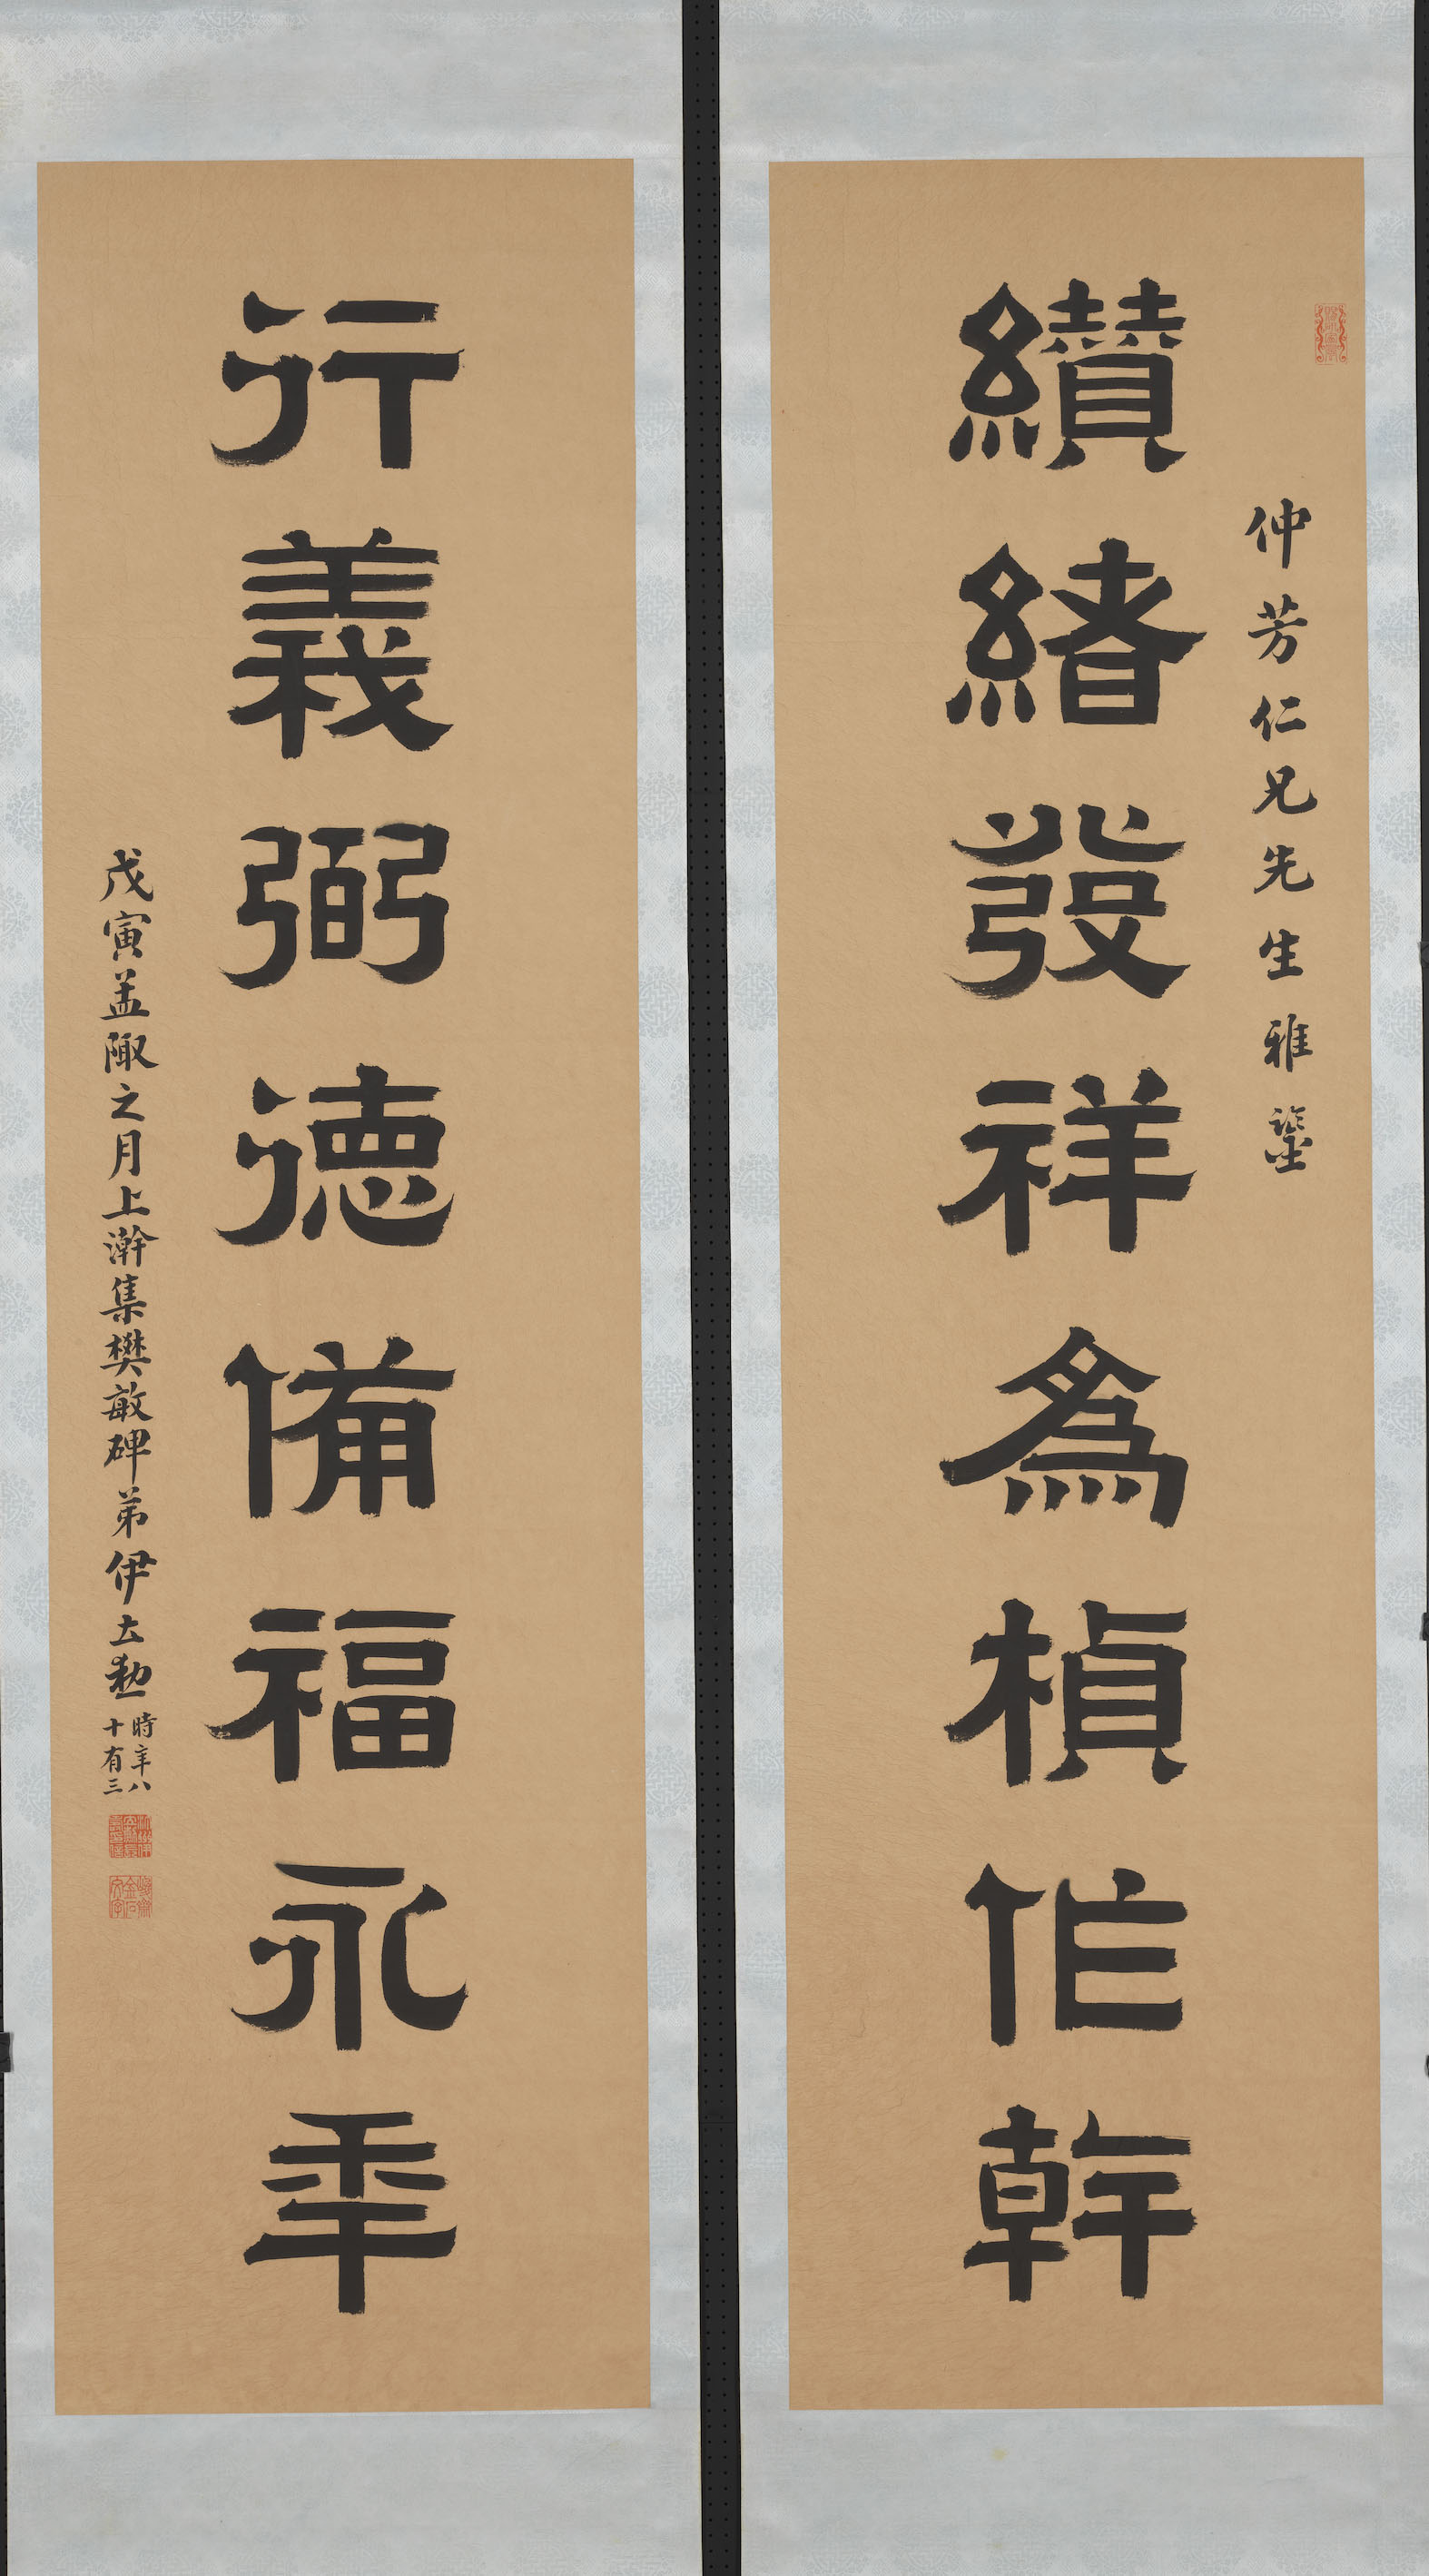 仲芳仁兄先生雅鑒
纘緒發祥為楨作幹
行義弼德備福永年
戊寅孟陬之月上澣集樊敏碑弟伊立勳
時年八
十有三